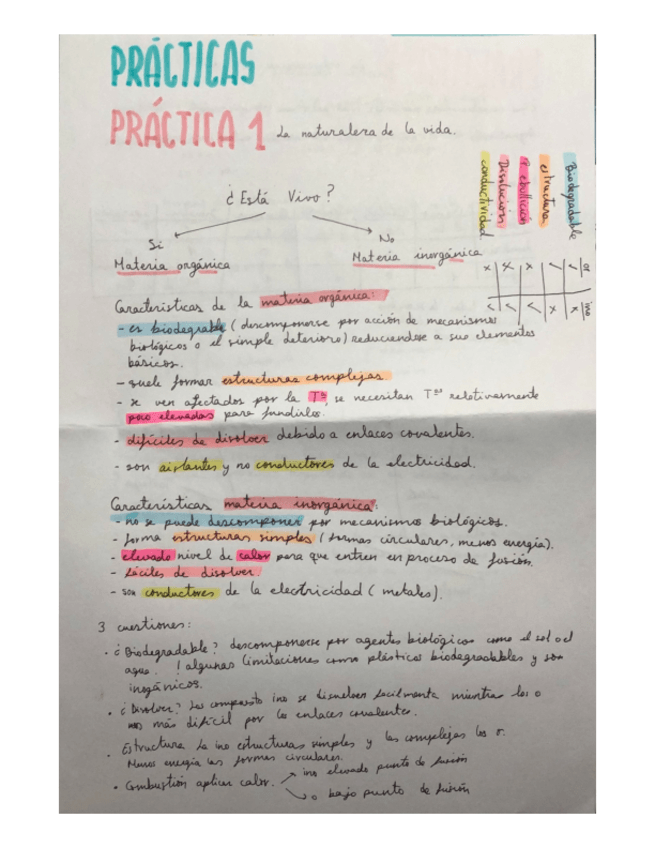 PRÁCTICAS
PRÁCTICA 1 La naturaleza de la vida.
¿Está Vivo?
Si
No
Materia orgánica
Materia inorgánica
Biodegradable
estructura
P. ebullición
Disolución
conductividad
or
ino
Características de la materia orgánica:
- es biodegrable (descomponerse por acción de mecanismos
biológicos o el simple deterioro) reduciendose a sus elementos
básicos.
- suele formar estructuras complejas
- se ven afectados por la Tª, se necesitan Tªs relativamente
poco elevadas para fundirlos.
- difíciles de disolver debido a enlaces covalentes.
- son aislantes y no conductores de la electricidad.
Características materia inorgánica:
- no se puede descomponer por mecanismos biológicos.
- forma estructuras simples (formas circulares, menos energía).
- elevado nivel de calor para que entren en proceso de fusión.
- fáciles de disolver.
- son conductores de la electricidad (metales).
3 cuestiones:
• ¿Biodegradable? descomponerse por agentes biológicos como el sol o el
agua. ! algunas limitaciones como plásticos biodegradables y son
inogánicos.
• ¿Disolver? Los compuesto ino se disuelven facilmente mientras los o
más difícil por los enlaces covalentes.
• Estructura La ino estructuras simples y las complejas los o.
Menos energía las formas circulares.
• Combustión aplicar calor. ino elevado punto de fusión
o bajo punto de fusión